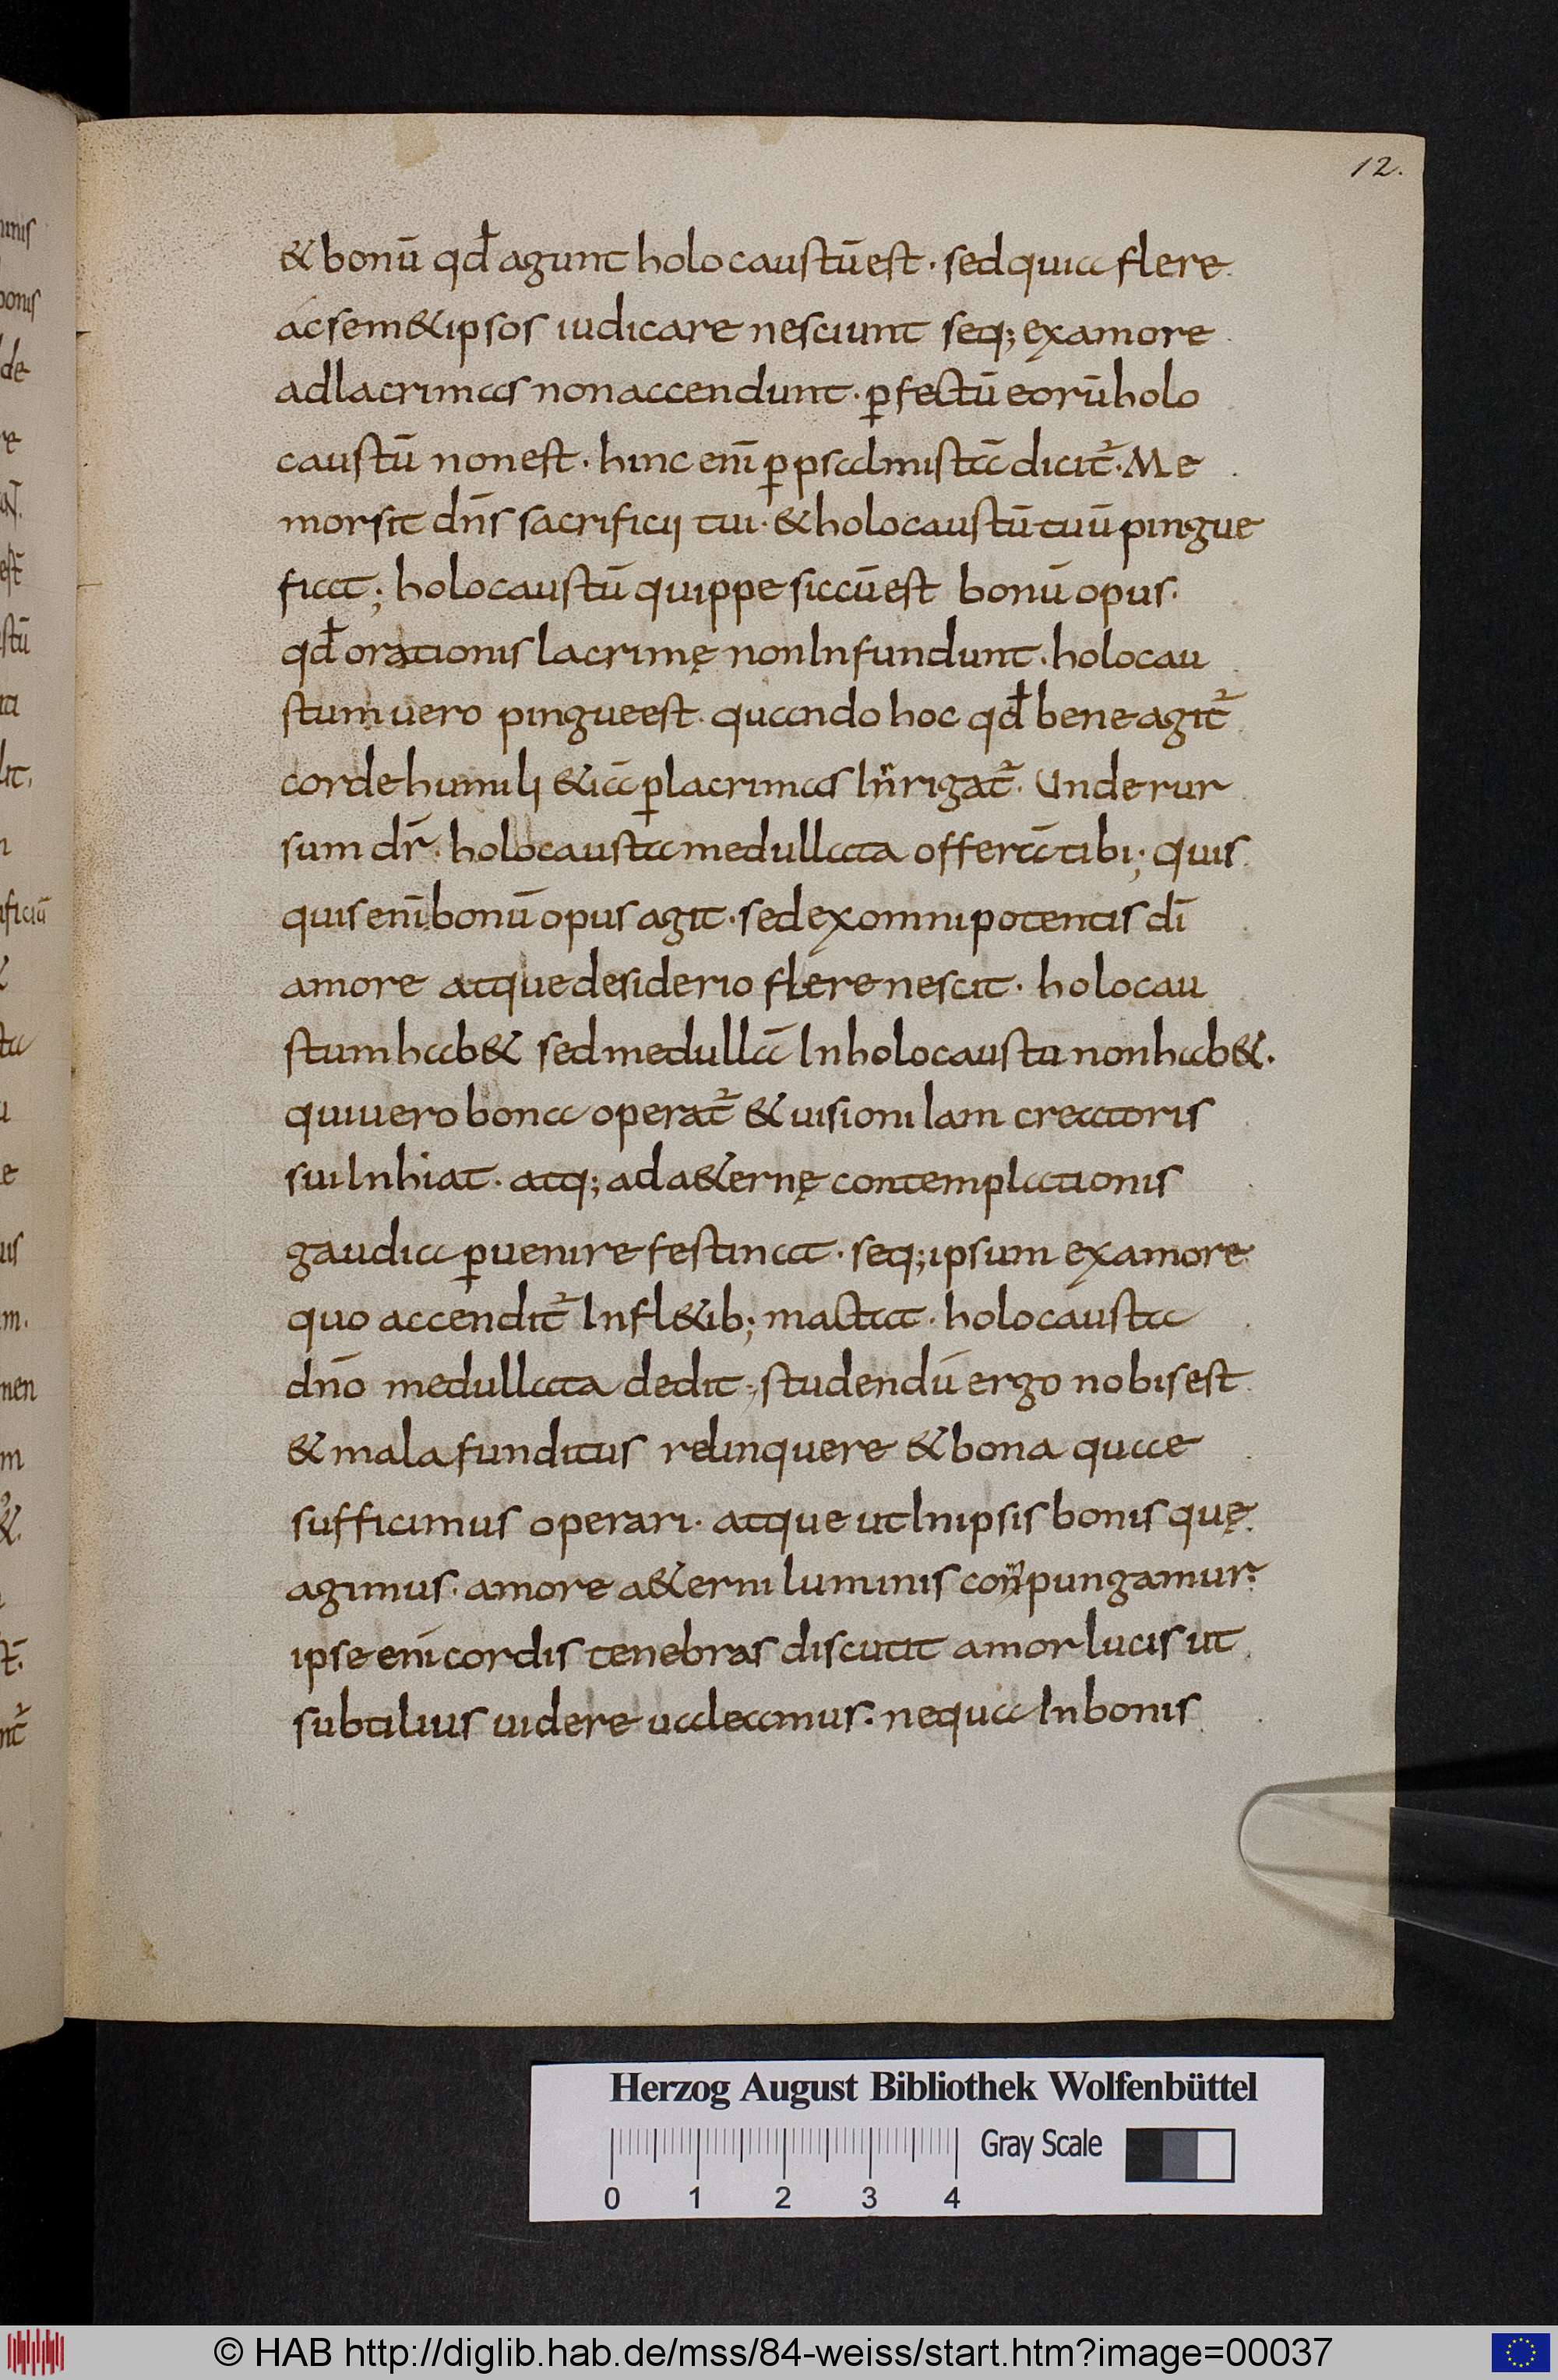 12.
& bonū qđ agunt holocaustū est · sed quia flere
ac sem&ipsos iudicare nesciunt seq; ex amore
ad lacrimas non accendunt · ꝑfectū eorū holo
caustū non est · hinc enī ꝑ psalmistā dicit᷑ · Me
mor sit dn̄s sacrificij tui · & holocaustū tuū pingue
fiat ; holocaustū quippe siccū est bonū opus ·
qđ orationis lacrimę non Infundunt · holocau
stum uero pingue est · quando hoc qđ bene agit᷑
corde humilj &iā ꝑ lacrimas Inrigat᷑ · Unde rur
sum dr̄ · holocausta medullata offerā tibi ; quis
quis enī bonū opus agit · sed ex omnipotentis dī
amore atque desiderio flere nescit · holocau
stum hab& sed medullā In holocausto non hab& ·
qui uero bona operat᷑ & uisioni Iam creatoris
sui Inhiat · atq; ad a&ernę contemplationis
gaudia ꝑuenire festinat · seq; ipsum ex amore
quo accendit᷑ In fl&ib; mactat · holocausta
dn̄o medullata dedit ; studendū ergo nobis est
& mala funditus relinquere & bona quae
sufficimus operari · atque ut In ipsis bonis quę
agimus · amore a&erni luminis conpungamur ·
ipse enī cordis tenebras discutit amor lucis ut
subtilius uidere ualeamus · ne qua In bonis
minis
bonis
de
re
Herzog August Bibliothek Wolfenbüttel
Gray Scale
0 1 2 3 4
© HAB http://diglib.hab.de/mss/84-weiss/start.htm?image=00037